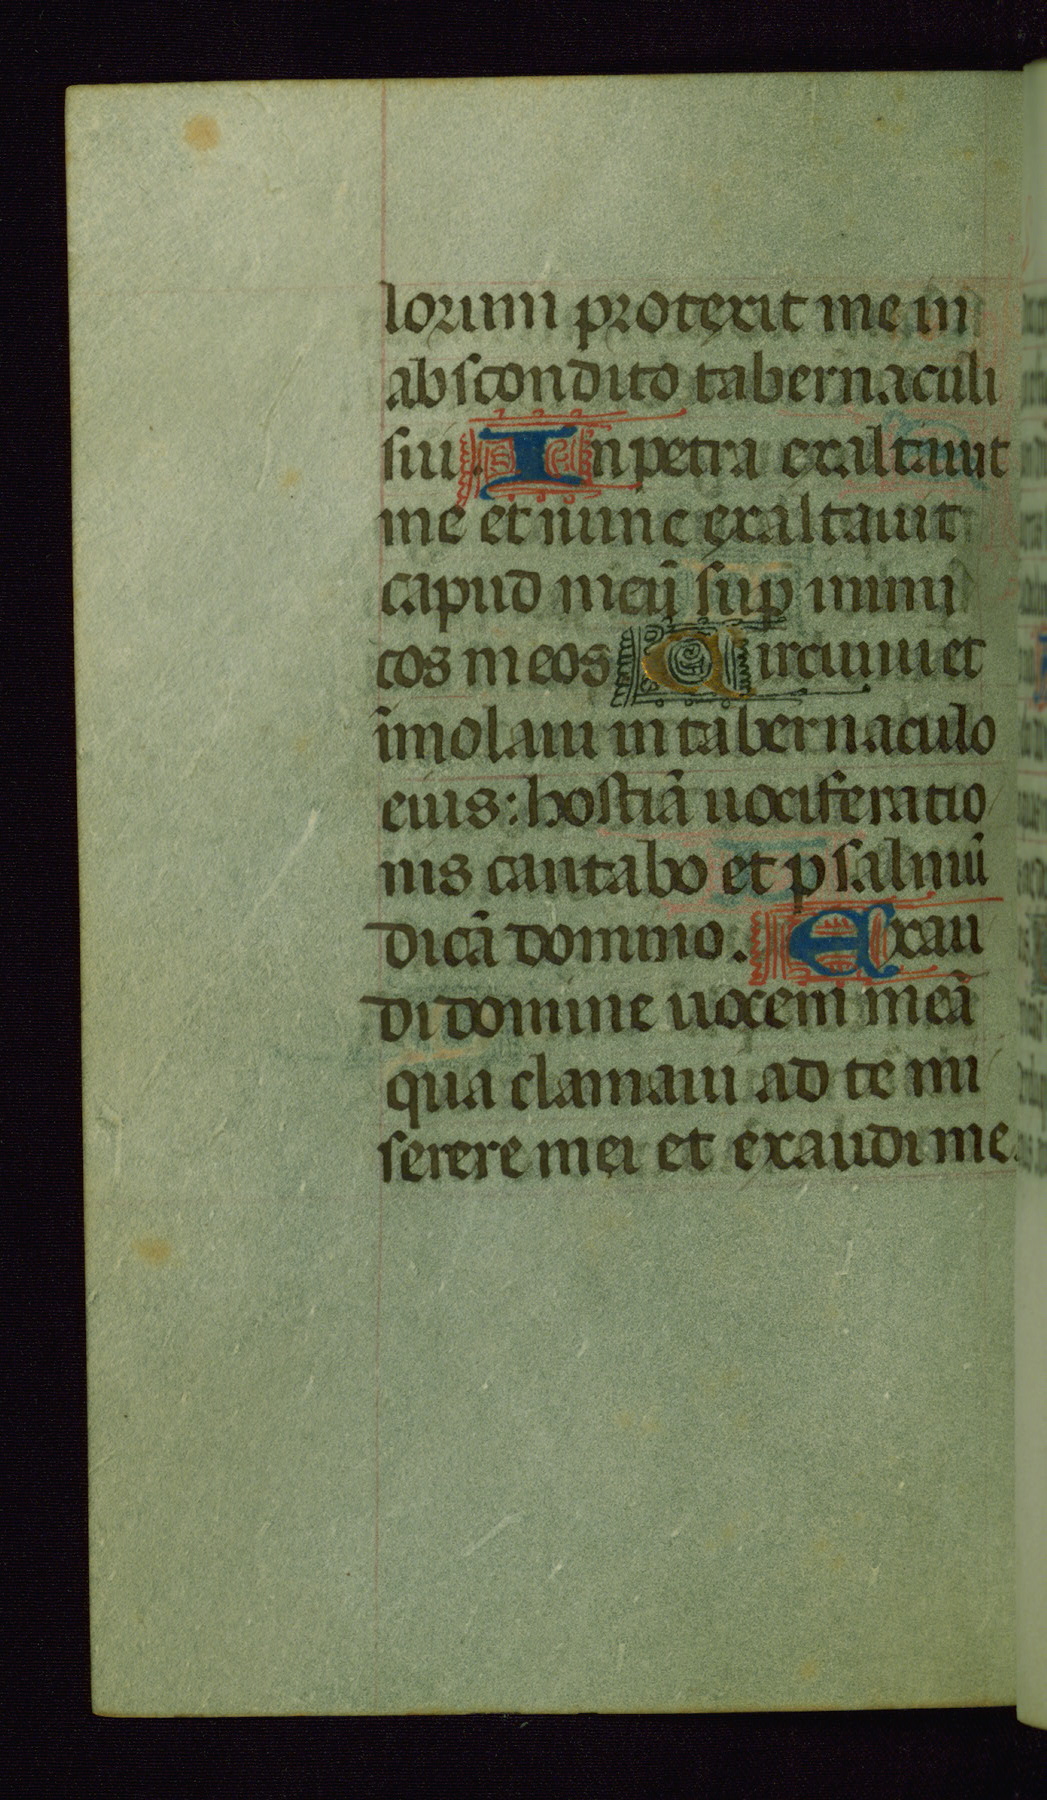 lorum protexit me in
abscondito tabernaculi
sui. In petra exaltauit
me et nunc exaltauit
capud meū sup inimi
cos meos Circuiui et
īmolaui in tabernaculo
eius: hostiā uociferatio
nis cantabo et psalmū
dicā domino. Exau
di domine uocem meā
qua clamaui ad te mi
serere mei et exaudi me.